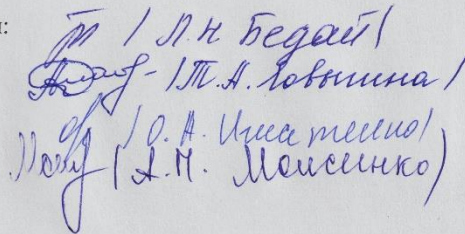 / Л. Н. Бедай /
/ Т. А. Ловыгина /
/ О. А. Игнатченко /
( А. М. Моисинко )